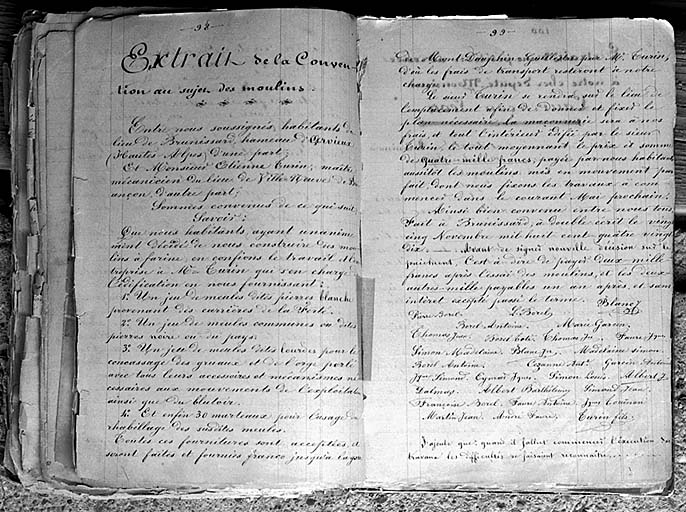 - 98 -
Extrait de la Conven-
tion au sujet des moulins.
Entre nous soussignés, habitants du
lieu de Brunissard, hameau d'Arvieux
(Hautes Alpes) d'une part;
Et Monsieur Etienne Turin, maître
mécanicien du lieu de Ville-Neuve de Bri
ançon d'autre part;
Sommes convenus de ce qui suit
Savoir:
Que nous habitants, ayant unanime
ment décidé de nous construire des mou
lins à farine, en confions le travail et l'en
treprise à Mr Turin qui s'en charge
l'édification en nous fournissant:
1º Un jeu de meules dites pierres blanche
provenant des carrières de la Ferté.
2º Un jeu de meules communes ou dites
pierres noire ou du pays.
3º Un jeu de meules dites lourdes pour le
concassage du gruaux et de l'orge perlé
avec tous leurs accessoires et mécanismes né
cessaires aux mouvements de l'exploitation
ainsi que du blutoir.
4º Et enfin 30 marteaux pour l'usage du
rhabillage des susdites meules.
Toutes ces fournitures sont acceptées, et
seront faites et fournies franco jusqu'à la gare
- 99 -
de Mont-Dauphin Guillestre par Mr Turin,
d'où les frais de transport resteront à notre
charge.
Le sieur Turin se rendra sur le lieu de
l'emplacement afin de donner et fixer le
plan nécessaire, la maçonnerie sera à nos
frais et tout l'intérieur édifié par le sieur
Turin, le tout moyennant le prix et somme
de quatre-mille francs, payée par nous habitants
aussitôt les moulins mis en mouvement par
fait dont nous fixons les travaux à com
mencer dans le courant Mai prochain.
Ainsi bien convenu entre nous
Fait à Brunissard, à double écrit le vingt
cinq Novembre mil huit cent quatre vingt
dix. Avant de signer nouvelle décision sur le
paiement, c'est à dire de payer deux mille
francs après l'essai des moulins, et les deux
autres mille payables un an après, et sans
intérêt excepté passé le terme. Blanc J
Pierre Borel. L. Borel,
Borel Antoine. Marie Garcin,
Thomas Jean. Faure Jques
Simon Madelaine, Blanc Jn, Madelaine Simon
Borel Antoine. Garcin Antoine
Jques Simond, Eymard Jques, Simon Louis, Albert J.
Dalmas, Albert Barthélemy, Simond Jean,
Françoise Borel, Faure Antoine,
Martin Jean, André Faure, Turin fils.
J'ajoute que quand il fallut commencer l'exécution des
travaux les difficultés se faisaient reconnaître.